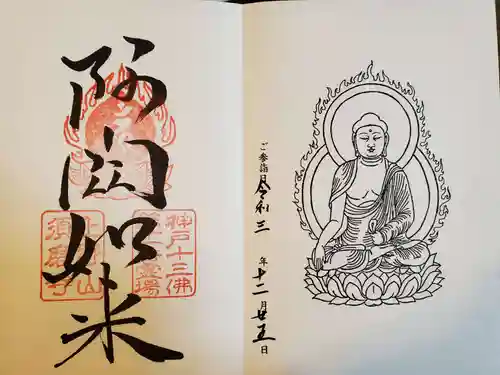 阿閦如来
神戸十三佛
第十一霊場
上野山
須磨寺
ご参詣日 令和三年十二月廿五日